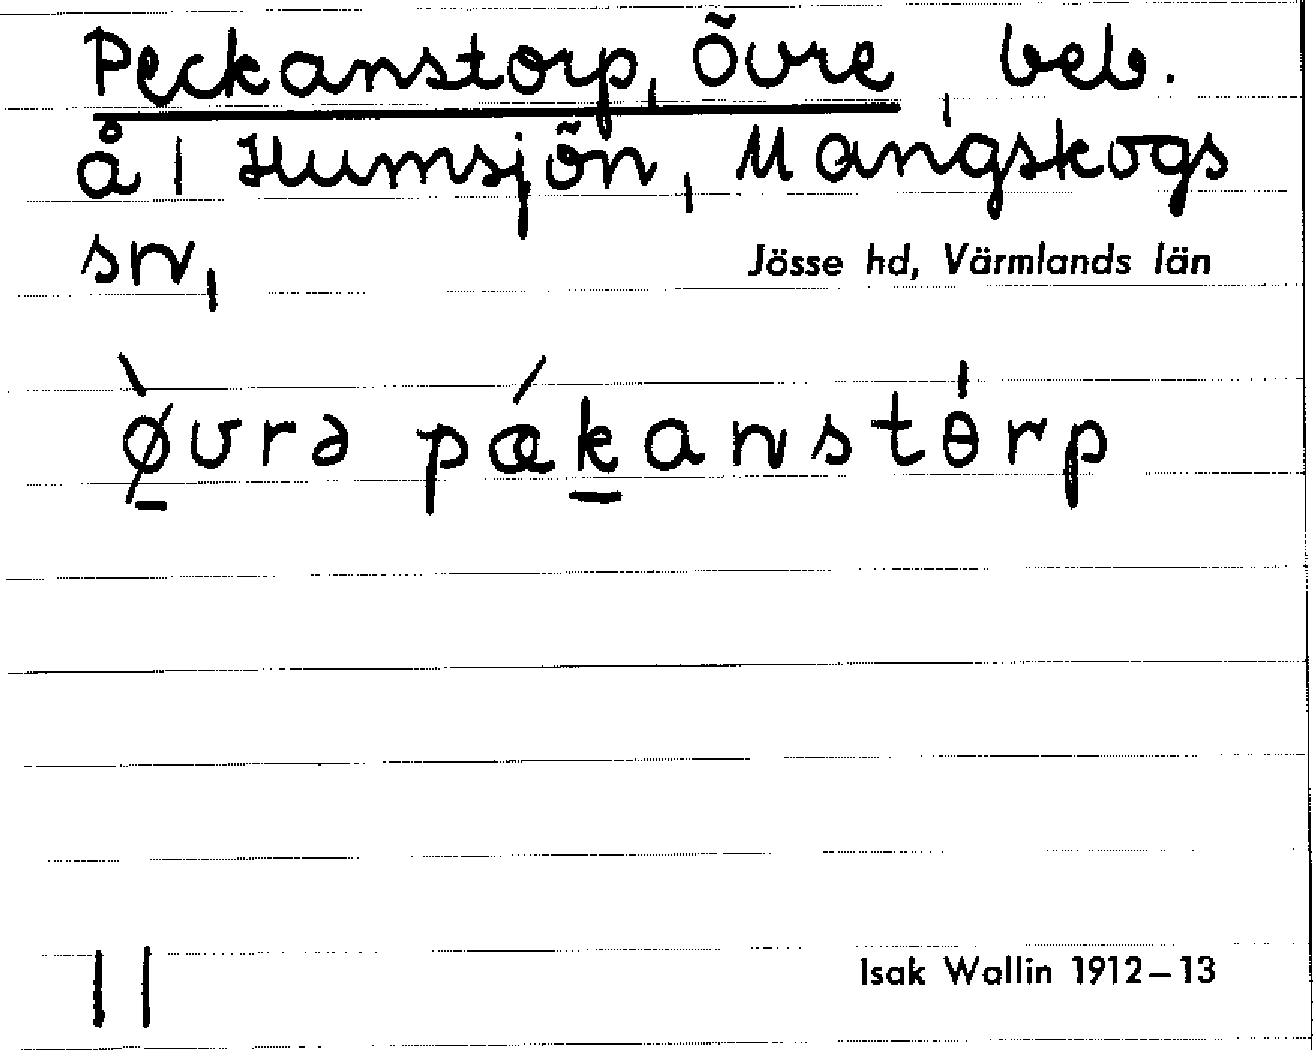 Peckanstorp, Övre, beb.
å 1 Humsjön, Mangskogs
sn,
Jösse hd, Värmlands län
ø̱̀vrə pǽḵanstɵ̍rp
11
Isak Wallin 1912–13